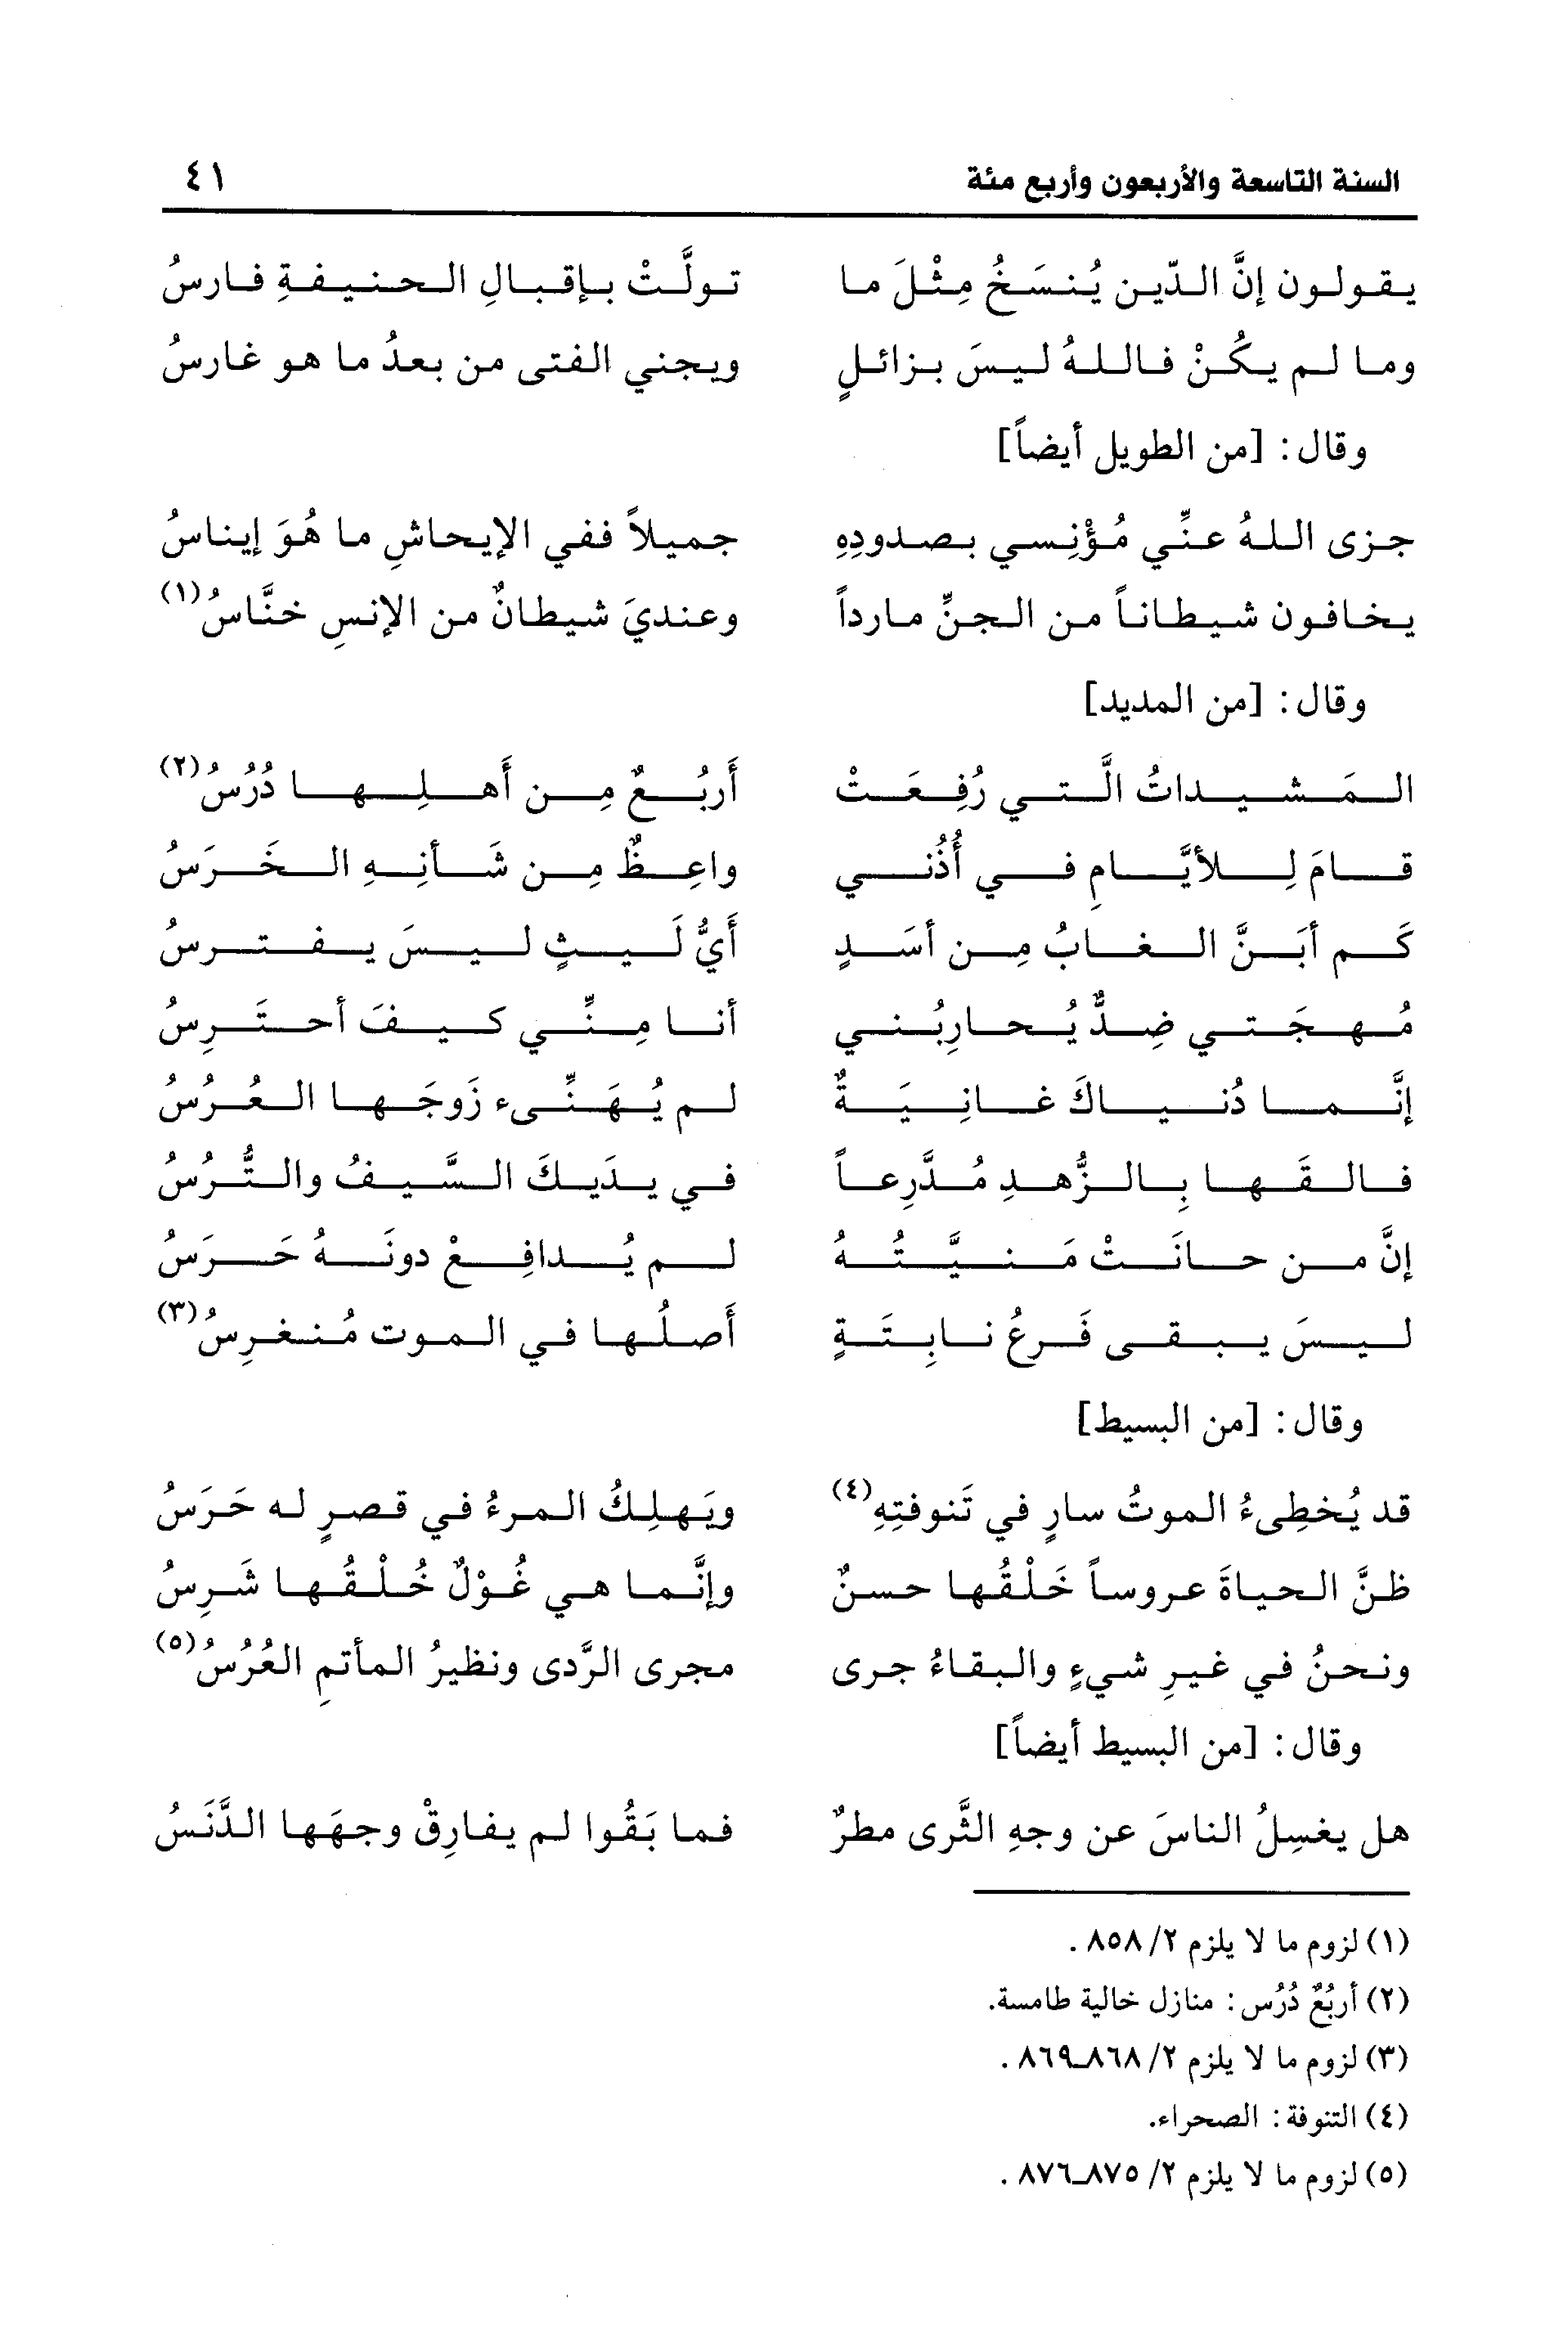 السنة التاسعة والأربعون وأربع مئة ٤١
يقولون إنَّ الدّين يُنسَخُ مِثْلَ ما تولَّتْ بإقبالِ الحنيفةِ فارسُ
وما لم يكُنْ فاللهُ ليسَ بزائلٍ ويجني الفتى من بعدُ ما هو غارسُ
وقال: [من الطويل أيضاً]
جزى اللهُ عنِّي مُؤْنِسي بصدودِهِ جميلاً ففي الإيحاشِ ما هُوَ إيناسُ
يخافون شيطاناً من الجنِّ مارداً وعنديَ شيطانٌ من الإنسِ خنَّاسُ(١)
وقال: [من المديد]
المَشيداتُ الَّتي رُفِعَتْ أَربُعٌ مِن أَهلِها دُرُسُ(٢)
قامَ لِلأيَّامِ في أُذُني واعِظٌ مِن شَأنِهِ الخَرَسُ
كَم أبَنَّ الغابُ مِن أسَدٍ أَيُّ لَيثٍ ليسَ يفترسُ
مُهجَتي ضِدٌّ يُحارِبُني أنا مِنِّي كيفَ أحتَرِسُ
إنَّما دُنياكَ غانِيَةٌ لم يُهَنِّىء زَوجَها العُرُسُ
فالقَها بِالزُّهدِ مُدَّرِعاً في يدَيكَ السَّيفُ والتُّرُسُ
إنَّ من حانَتْ مَنيَّتُهُ لم يُدافِعْ دونَهُ حَرَسُ
ليسَ يبقى فَرعُ نابِتَةٍ أَصلُها في الموت مُنغرِسُ(٣)
وقال: [من البسيط]
قد يُخطِىءُ الموتُ سارٍ في تَنوفتِهِ(٤) ويَهلِكُ المرءُ في قصرٍ له حَرَسُ
ظنَّ الحياةَ عروساً خَلْقُها حسنٌ وإنَّما هي غُوْلٌ خُلْقُها شَرِسُ
ونحنُ في غيرِ شيءٍ والبقاءُ جرى مجرى الرَّدى ونظيرُ المأتمِ العُرُسُ(٥)
وقال: [من البسيط أيضاً]
هل يغسِلُ الناسَ عن وجهِ الثَّرى مطرٌ فما بَقُوا لم يفارِقْ وجهَها الدَّنَسُ
(١) لزوم ما لا يلزم ٢/ ٨٥٨ .
(٢) أربُعٌ دُرُس: منازل خالية طامسة.
(٣) لزوم ما لا يلزم ٢/ ٨٦٨ـ٨٦٩ .
(٤) التنوفة: الصحراء.
(٥) لزوم ما لا يلزم ٢/ ٨٧٥ـ٨٧٦ .